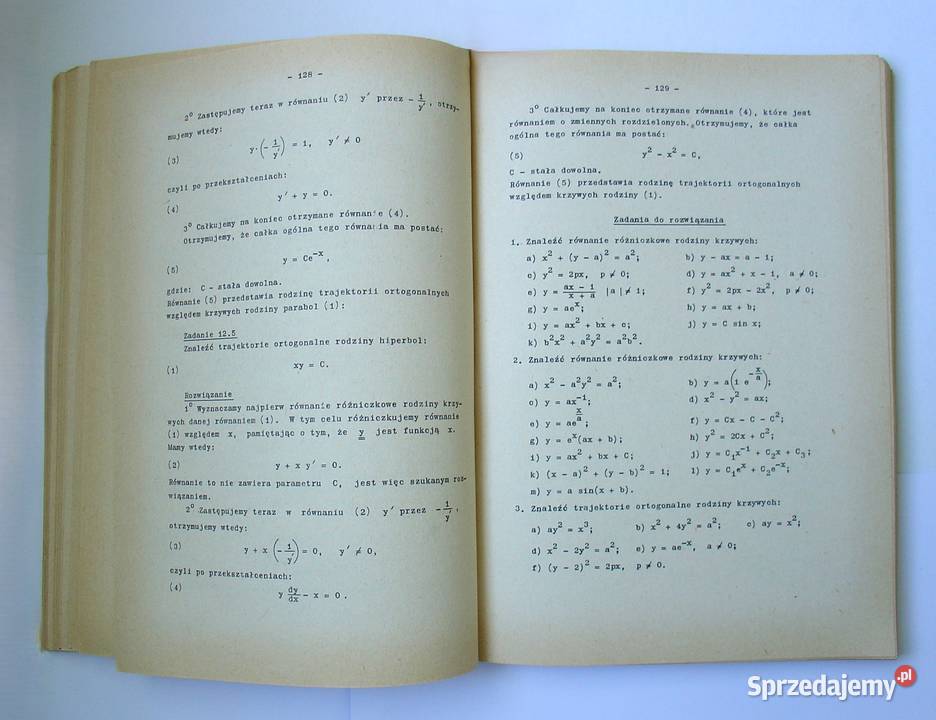 - 128 -
2° Zastępujemy teraz w równaniu (2) y′ przez - 1/y′, otrzy-
mujemy wtedy:
(3) y·(- 1/y′) = 1, y′ ≠ 0
czyli po przekształceniach:
(4) y′ + y = 0.
3° Całkujemy na koniec otrzymane równanie (4).
Otrzymujemy, że całka ogólna tego równania ma postać:
(5) y = Ce^-x,
gdzie: C - stała dowolna.
Równanie (5) przedstawia rodzinę trajektorii ortogonalnych
względem krzywych rodziny parabol (1):
Zadanie 12.5
Znaleźć trajektorie ortogonalne rodziny hiperbol:
(1) xy = C.
Rozwiązanie
1° Wyznaczamy najpierw równanie różniczkowe rodziny krzy-
wych danej równaniem (1). W tym celu różniczkujemy równanie
(1) względem x, pamiętając o tym, że y jest funkcją x.
Mamy wtedy:
(2) y + x y′ = 0.
Równanie to nie zawiera parametru C, jest więc szukanym roz-
wiązaniem.
2° Zastępujemy teraz w równaniu (2) y′ przez - 1/y,
otrzymujemy wtedy:
(3) y + x (- 1/y′) = 0, y′ ≠ 0,
czyli po przekształceniach:
(4) y dy/dx - x = 0.
- 129 -
3° Całkujemy na koniec otrzymane równanie (4), które jest
równaniem o zmiennych rozdzielonych. Otrzymujemy, że całka
ogólna tego równania ma postać:
(5) y² - x² = C,
C - stała dowolna.
Równanie (5) przedstawia rodzinę trajektorii ortogonalnych
względem krzywych rodziny (1).
Zadania do rozwiązania
1. Znaleźć równanie różniczkowe rodziny krzywych:
a) x² + (y - a)² = a²; b) y - ax = a - 1;
c) y² = 2px, p ≠ 0; d) y = ax² + x - 1, a ≠ 0;
e) y = (ax - 1)/(x + a) |a| ≠ 1; f) y² = 2px - 2x², p ≠ 0;
g) y = ae^x; h) y = ax + b;
i) y = ax² + bx + c; j) y = C sin x;
k) b²x² + a²y² = a²b².
2. Znaleźć równanie różniczkowe rodziny krzywych:
a) x² - a²y² = a²; b) y = a(1 e^(-x/a));
c) y = ax⁻¹; d) x² - y² = ax;
e) y = ae^(x/a); f) y = Cx - C - C²;
g) y = e^x(ax + b); h) y² = 2Cx + C²;
i) y = ax² + bx + C; j) y = C₁x⁻¹ + C₂x + C₃;
k) (x - a)² + (y - b)² = 1; l) y = C₁e^x + C₂e^-x;
m) y = a sin(x + b).
3. Znaleźć trajektorie ortogonalne rodziny krzywych:
a) ay² = x³; b) x² + 4y² = a²; c) ay = x²;
d) x² - 2y² = a²; e) y = ae^-x, a ≠ 0;
f) (y - 2)² = 2px, p ≠ 0.
Sprzedajemy.pl